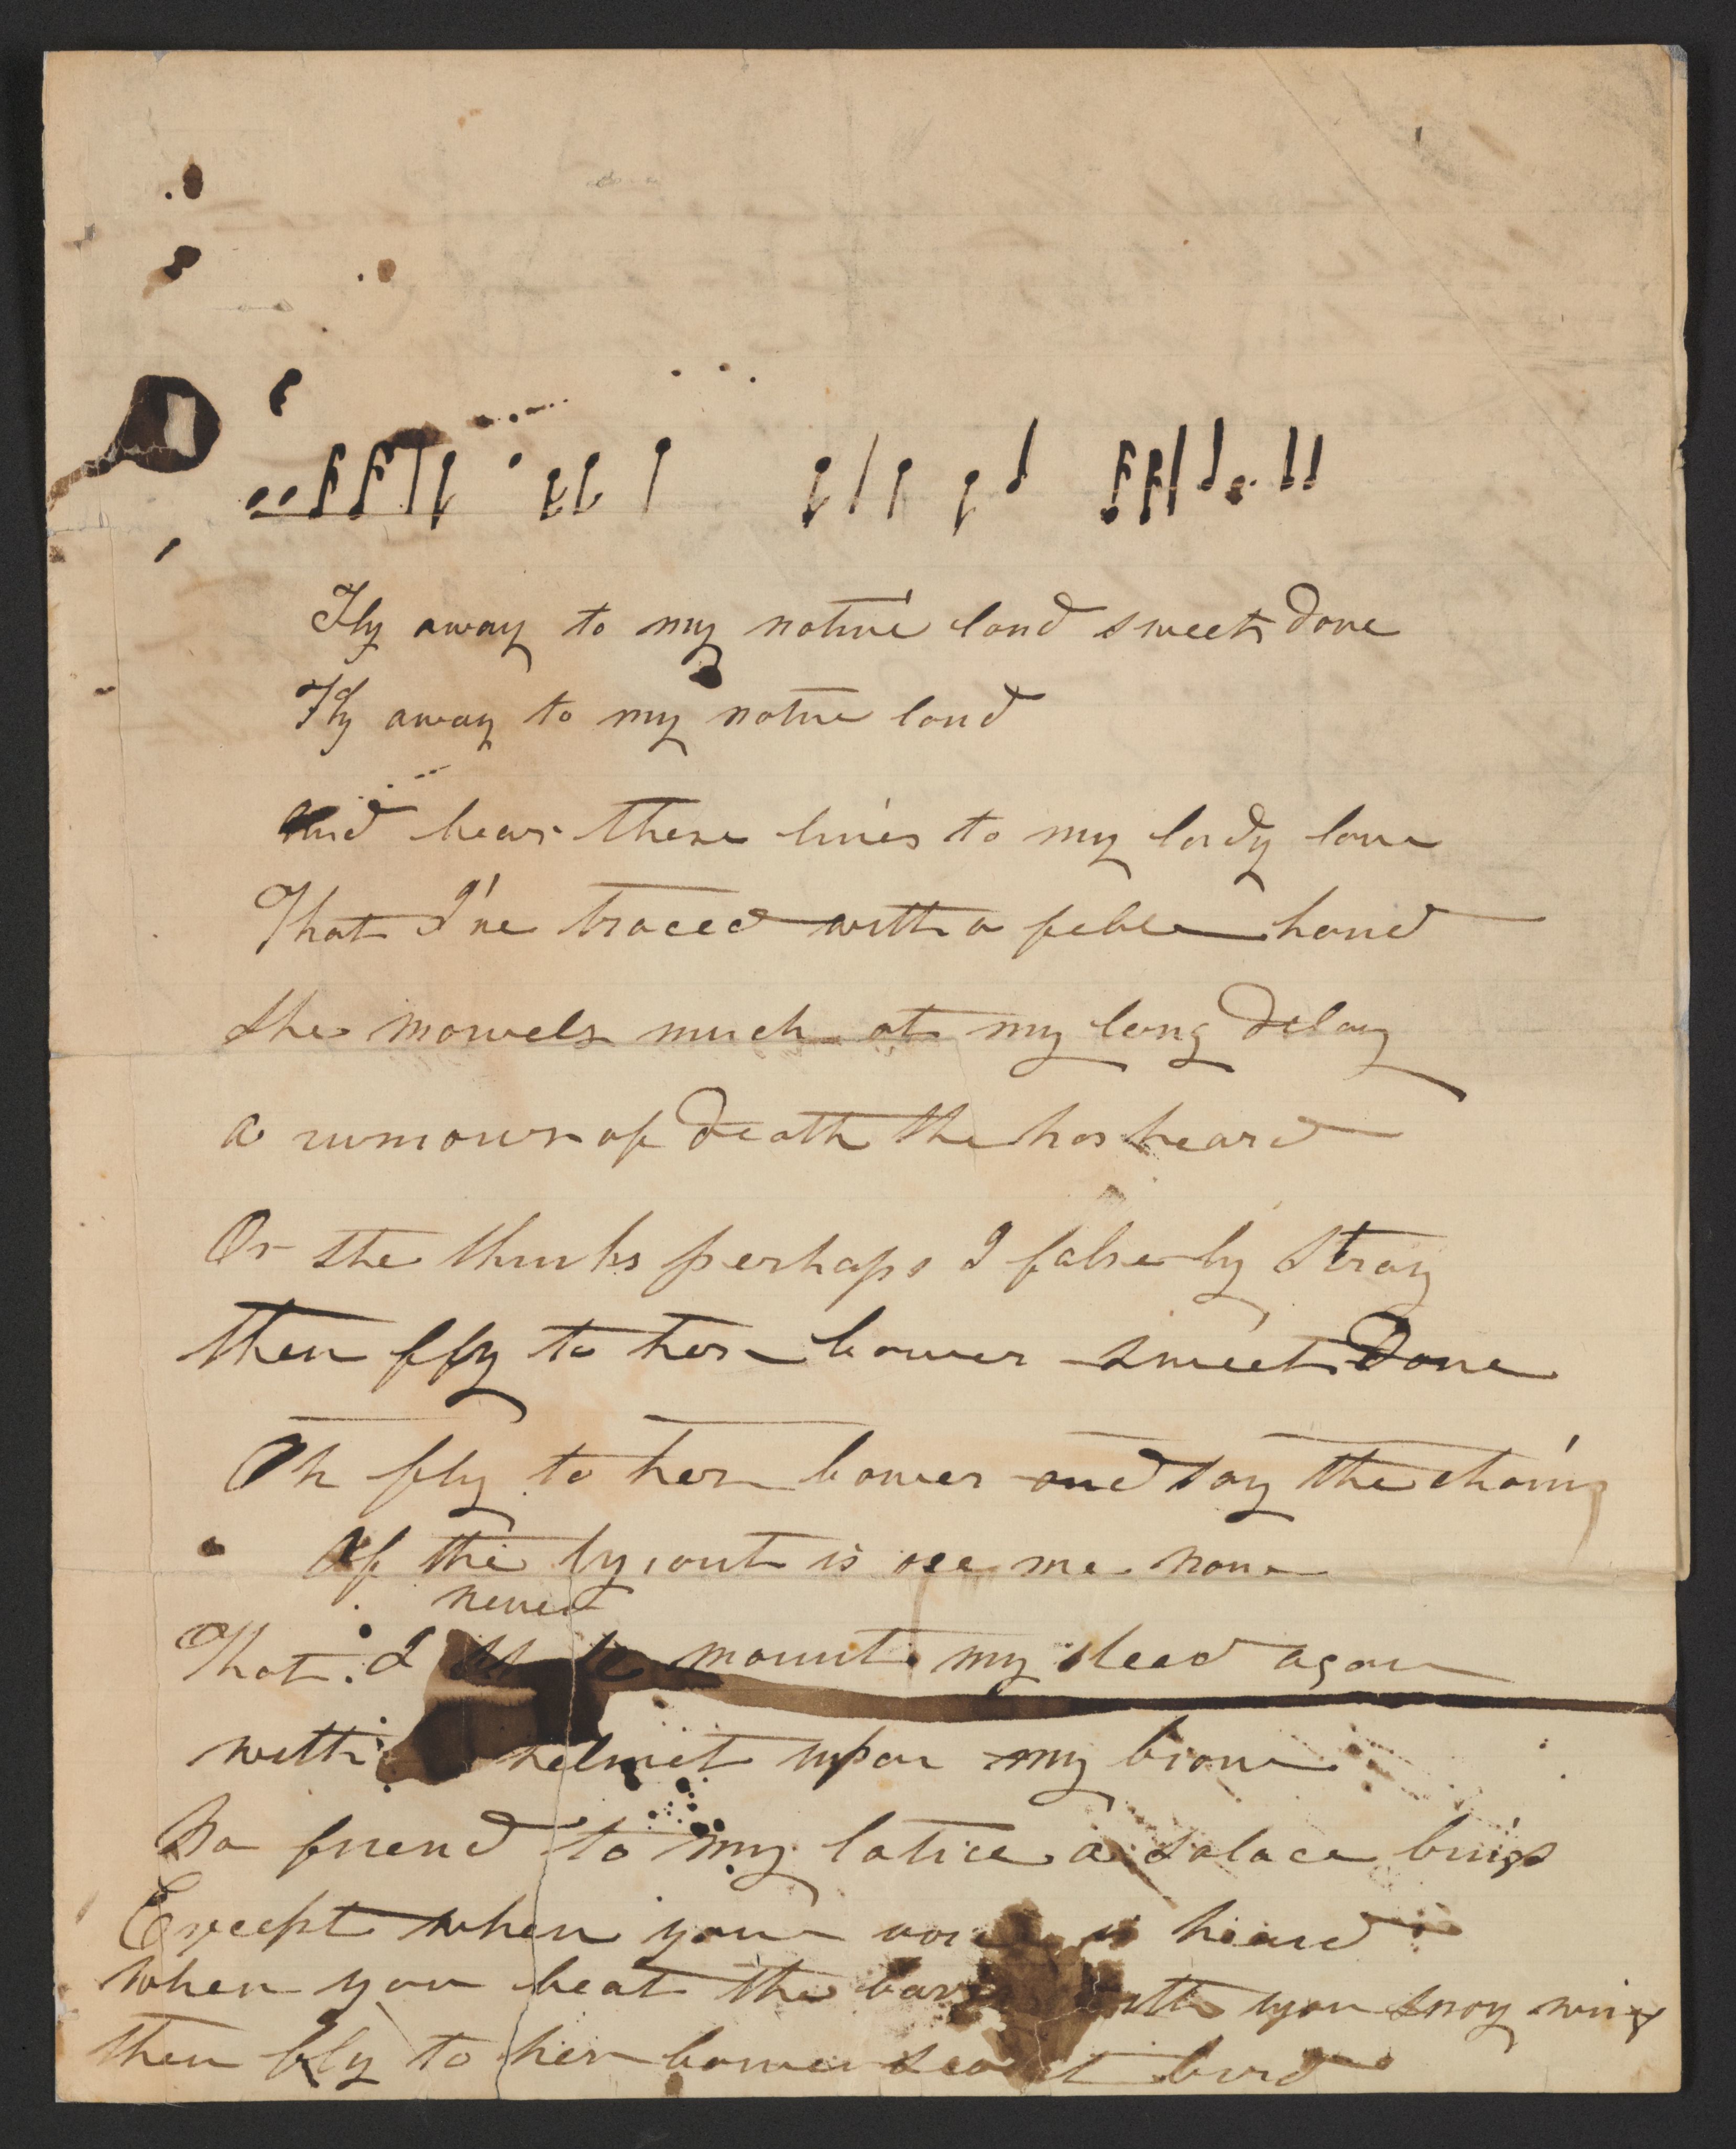 Fly away to my native land sweet dove
Fly away to my native land
and bear these lines to my lady love
That I've traced with a feble hand
she marvels much at my long delay
a rumour of death she has heard
Or she thinks perhaps I falsely stray
then fly to her bower sweet Dove
Oh fly to her bower and say the chains
Of the tyrant is oer me now
never
That I mount my steed again
with helmet upon my brow
No friend to my latice a solace brings
Except when your is heard
when you beat the bars with you snoy wing
then fly to her bower bird